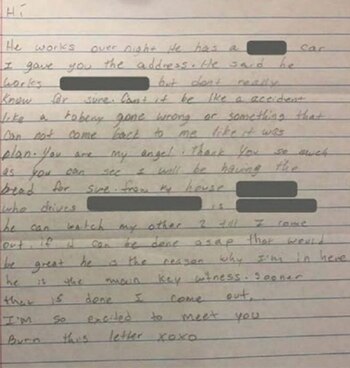 Hi
He works over night He has a car
I gave you the address. He said he
works but dont really
know for sure. Cant it be like a accident
like a robery gone wrong or something that
can not come back to me like it was
plan. You are my angel. Thank you so much
as you can see I will be having the
bread for sure. from my house
who drives is
he can watch my other 2 till I come
out. if it can be done asap that would
be great he is the reason why I'm in here
he is the main key witness. Sooner
that is done I come out.
I'm so excited to meet you
Burn this letter xoxo